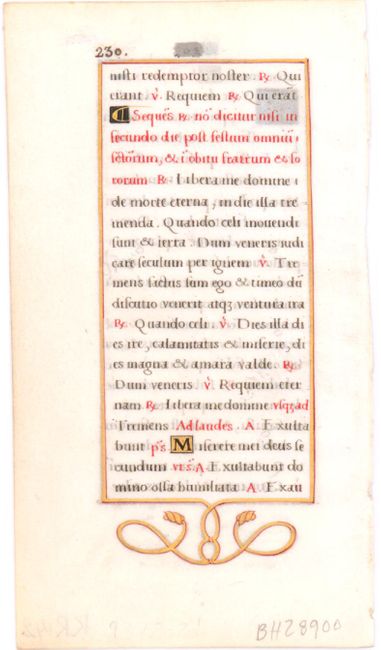 230.
nisti redemptor noster. ℟. Qui
erant ℣. Requiem ℟. Qui erāt
Sequēs ℟. nō dicitur nisi in
secundo die post festum omniū
sctōrum, & ī obitu fratrum & so
rorum ℟. Libera me domine
de morte eterna, in die illa tre
menda. Quando celi movendi
sunt & terra. Dum veneris iudi
care seculum per ignem ℣. Tre
mens factus sum ego & timeo dū
discutio venerit atqȝ ventura ira
℟. Quando celi. ℣. Dies illa di
es ire, calamitatis & miserie, di
es magna & amara valde. ℟.
Dum veneris ℣. Requiem eter
nam ℟. Libera me domine usqȝ ad
Tremens Ad laudes. A. Exulta
bunt ps. Miserere mei deus se
cundum A. Exultabunt do
mino ossa humiliata A. Exau
BH28900